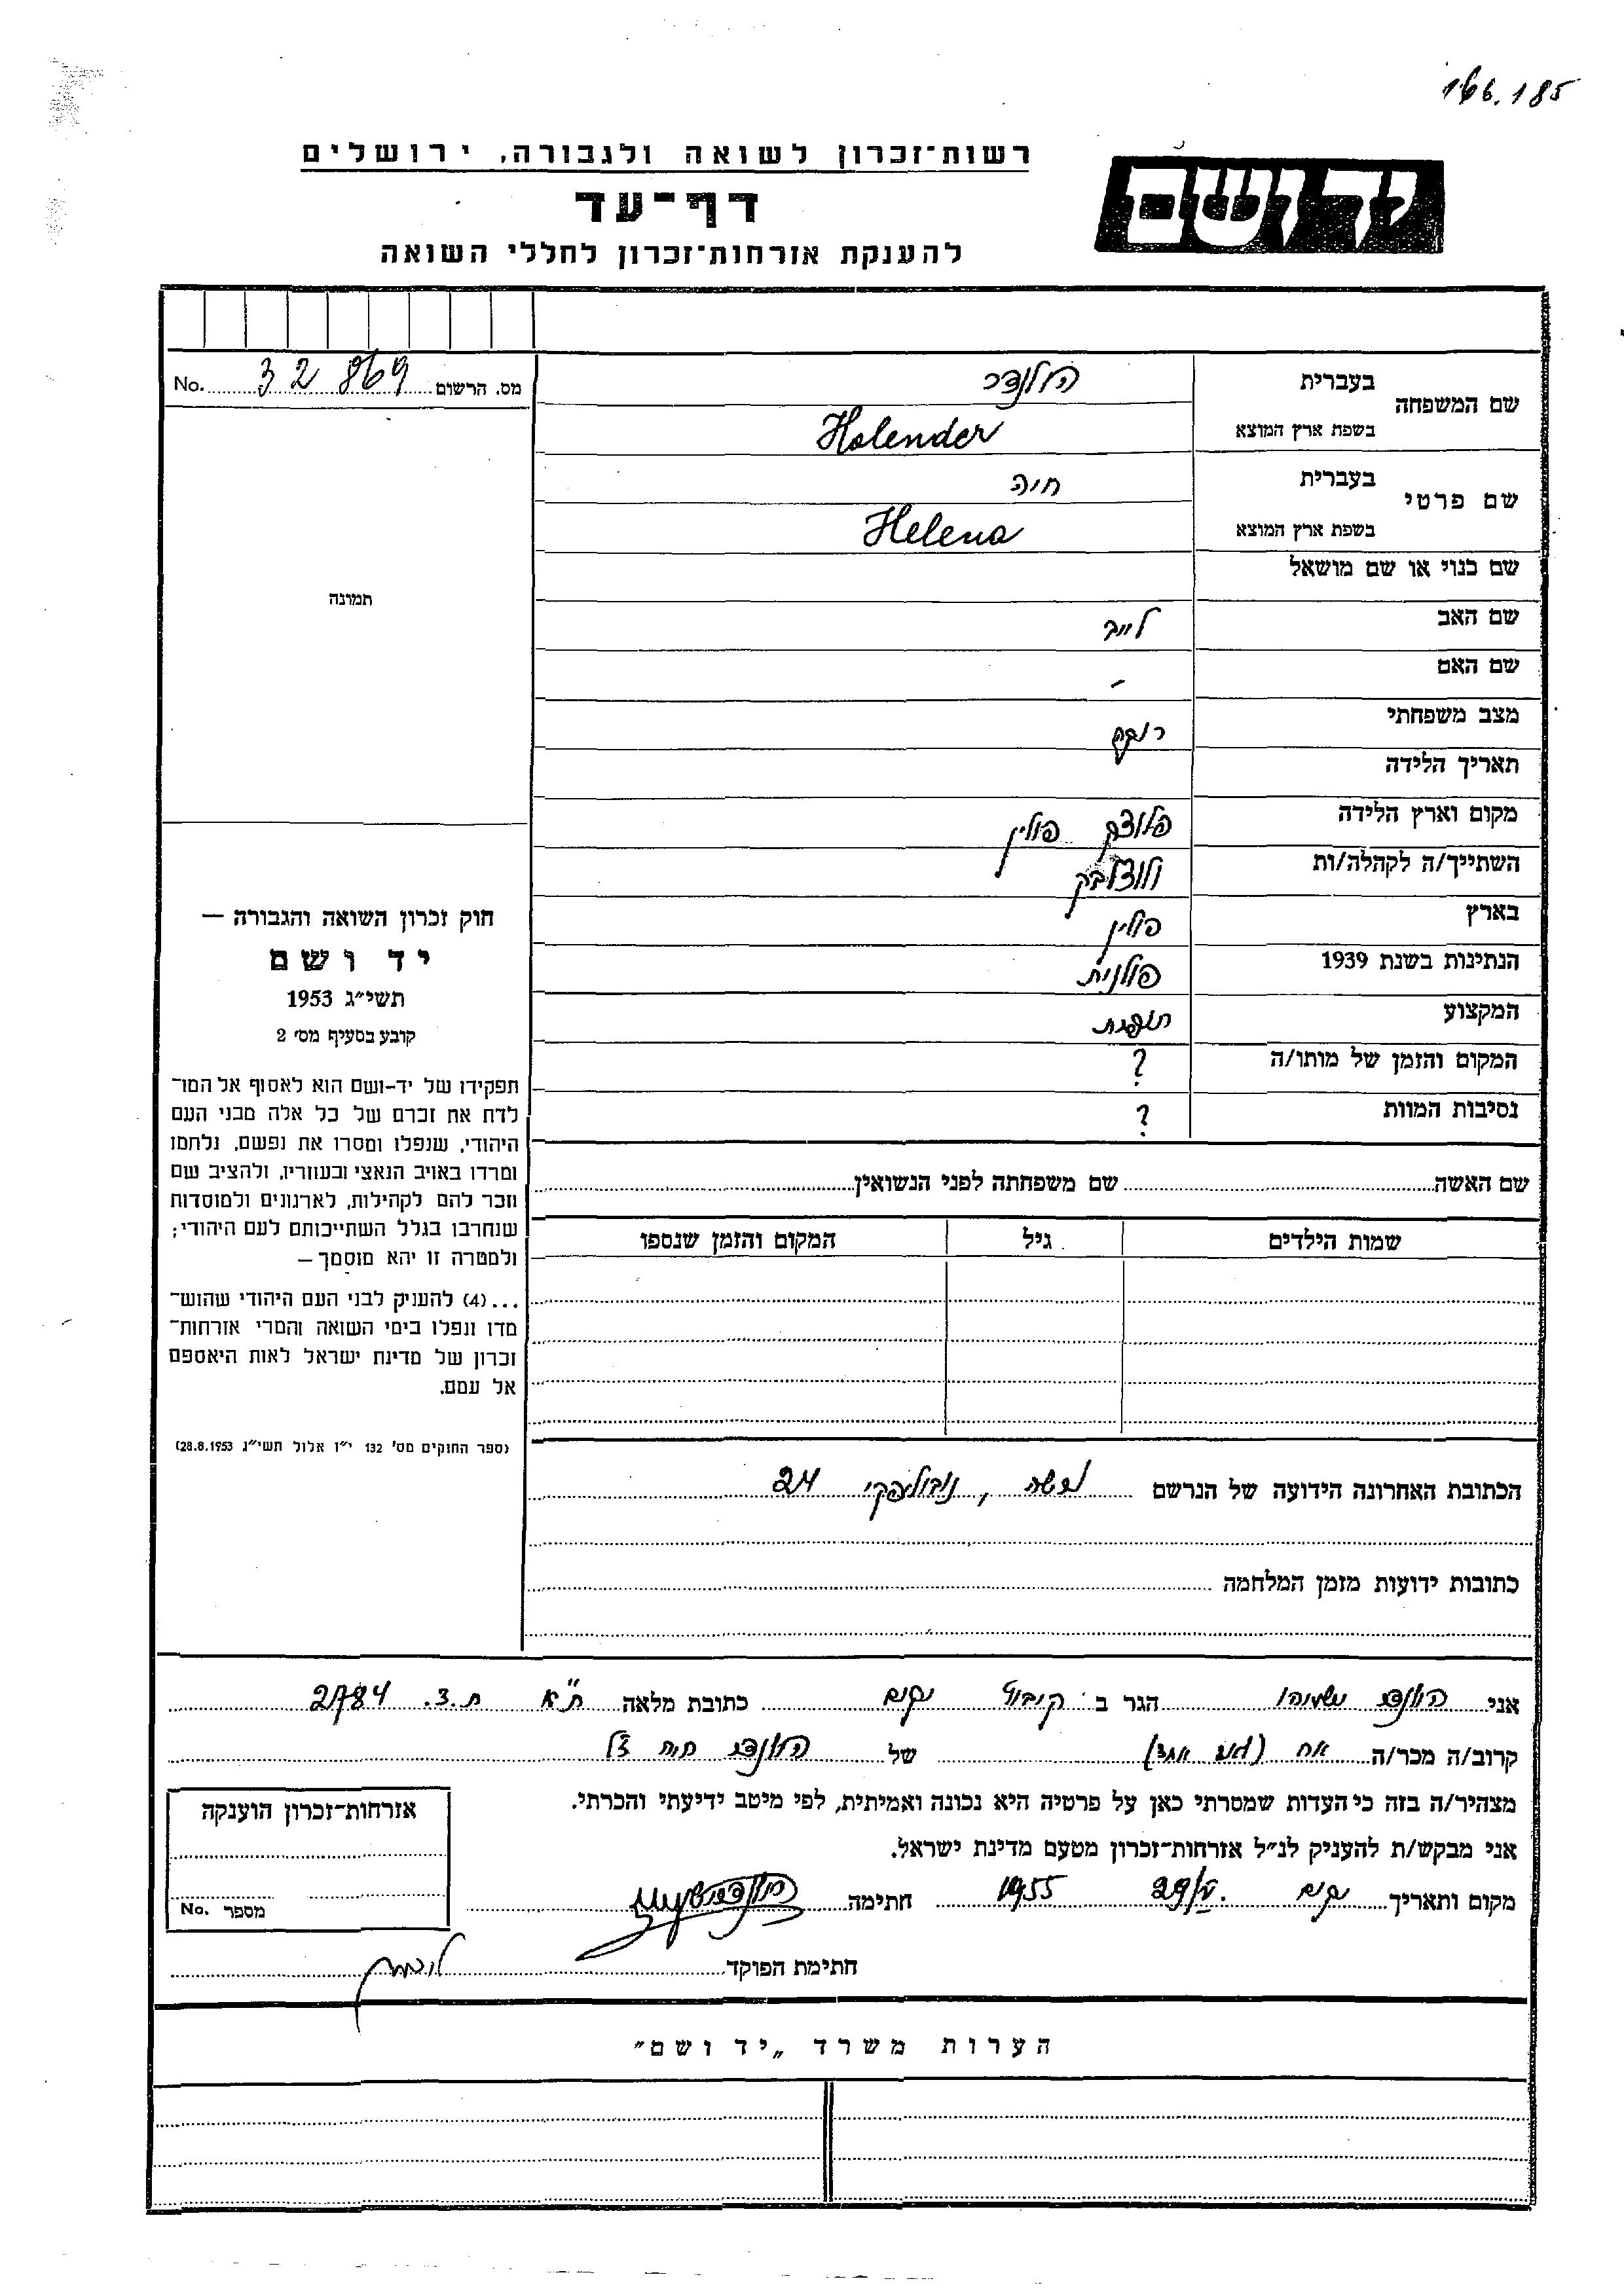 166.185
רשות־זכרון לשואה ולגבורה, ירושלים
דף־עד
להענקת אזרחות־זכרון לחללי השואה
יד ושם
מס. הרשום 32869 No.
שם המשפחה
בעברית הולנדר
בשפת ארץ המוצא Holender
שם פרטי
בעברית חיה
בשפת ארץ המוצא Helena
שם כנוי או שם מושאל
שם האב לייב
שם האם -
מצב משפחתי רווקה
תאריך הלידה
מקום וארץ הלידה פלוצק פולין
השתייך/ה לקהלה/ות
בארץ פולין
הנתינות בשנת 1939 פולנית
המקצוע תופרת
המקום והזמן של מותו/ה ?
נסיבות המוות ?
שם האשה שם משפחתה לפני הנשואין
שמות הילדים גיל המקום והזמן שנספו
הכתובת האחרונה הידועה של הנרשם ורשה, נובוליפקי 24
כתובות ידועות מזמן המלחמה
תמונה
חוק זכרון השואה והגבורה —
יד ושם
תשי״ג 1953
קובע בסעיף מס׳ 2
תפקידו של יד-ושם הוא לאסוף אל המו־
לדת את זכרם של כל אלה מבני העם
היהודי, שנפלו ומסרו את נפשם, נלחמו
ומרדו באויב הנאצי ובעוזריו, ולהציב שם
וזכר להם לקהילות, לארגונים ולמוסדות
שנחרבו בגלל השתייכותם לעם היהודי;
ולמטרה זו יהא מוסמך —
...(4) להעניק לבני העם היהודי שהוש־
מדו ונפלו בימי השואה והמרי אזרחות־
זכרון של מדינת ישראל לאות היאספם
אל עמם.
(ספר החוקים מס׳ 132 י״ז אלול תשי״ג 28.8.1953)
אני הולנדר הגר ב קיבוץ יקום כתובת מלאה ת"א ת.ד. 2784
קרוב/ה מכר/ה אח של הולנדר חיה ז"ל
מצהיר/ה בזה כי העדות שמסרתי כאן על פרטיה היא נכונה ואמיתית, לפי מיטב ידיעתי והכרתי.
אני מבקש/ת להעניק לנ״ל אזרחות־זכרון מטעם מדינת ישראל.
מקום ותאריך יקום 29/V. 1955 חתימה
חתימת הפוקד
אזרחות־זכרון הוענקה
מספר No.
הערות משרד „יד ושם״